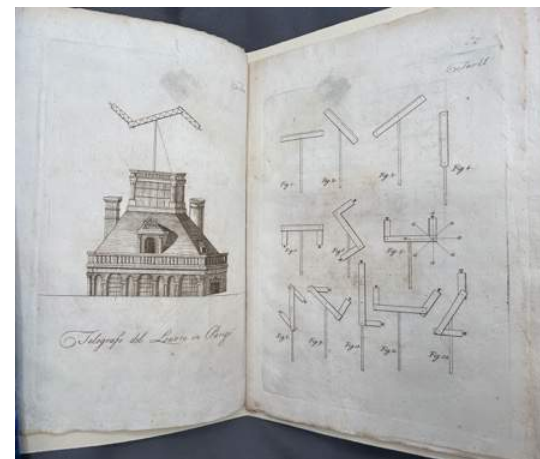 Telegrafo del Louvre in Parigi
Fig. 1.
Fig. 2.
Fig. 3.
Fig. 4.
Fig. 5.
Fig. 6.
Fig. 7.
Fig. 8.
Fig. 9.
Fig. 10.
Fig. 11.
Fig. 12.